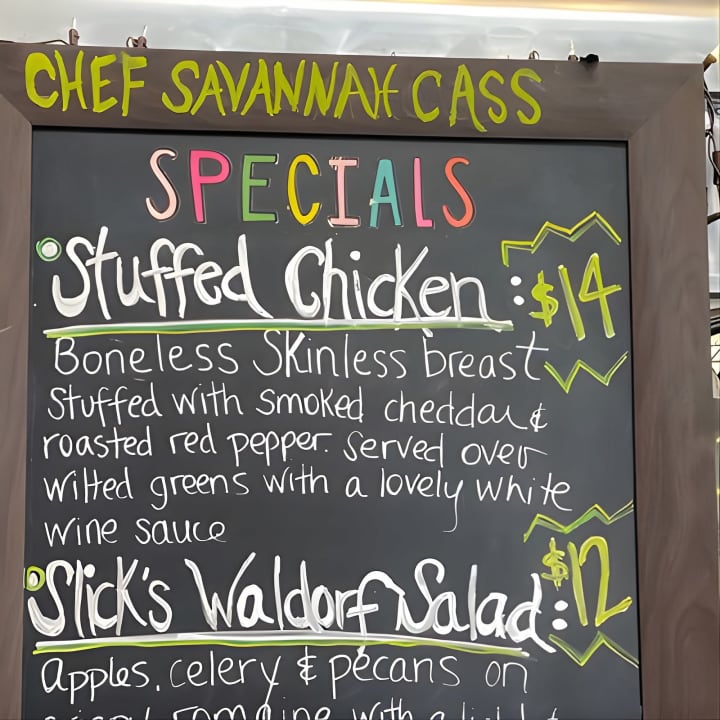 CHEF SAVANNAH CASS
SPECIALS
Stuffed Chicken : $14
Boneless Skinless breast
Stuffed with smoked cheddar &
roasted red pepper. Served over
wilted greens with a lovely white
wine sauce
Slick's Waldorf Salad : $12
apples, celery & pecans on
romaine with a